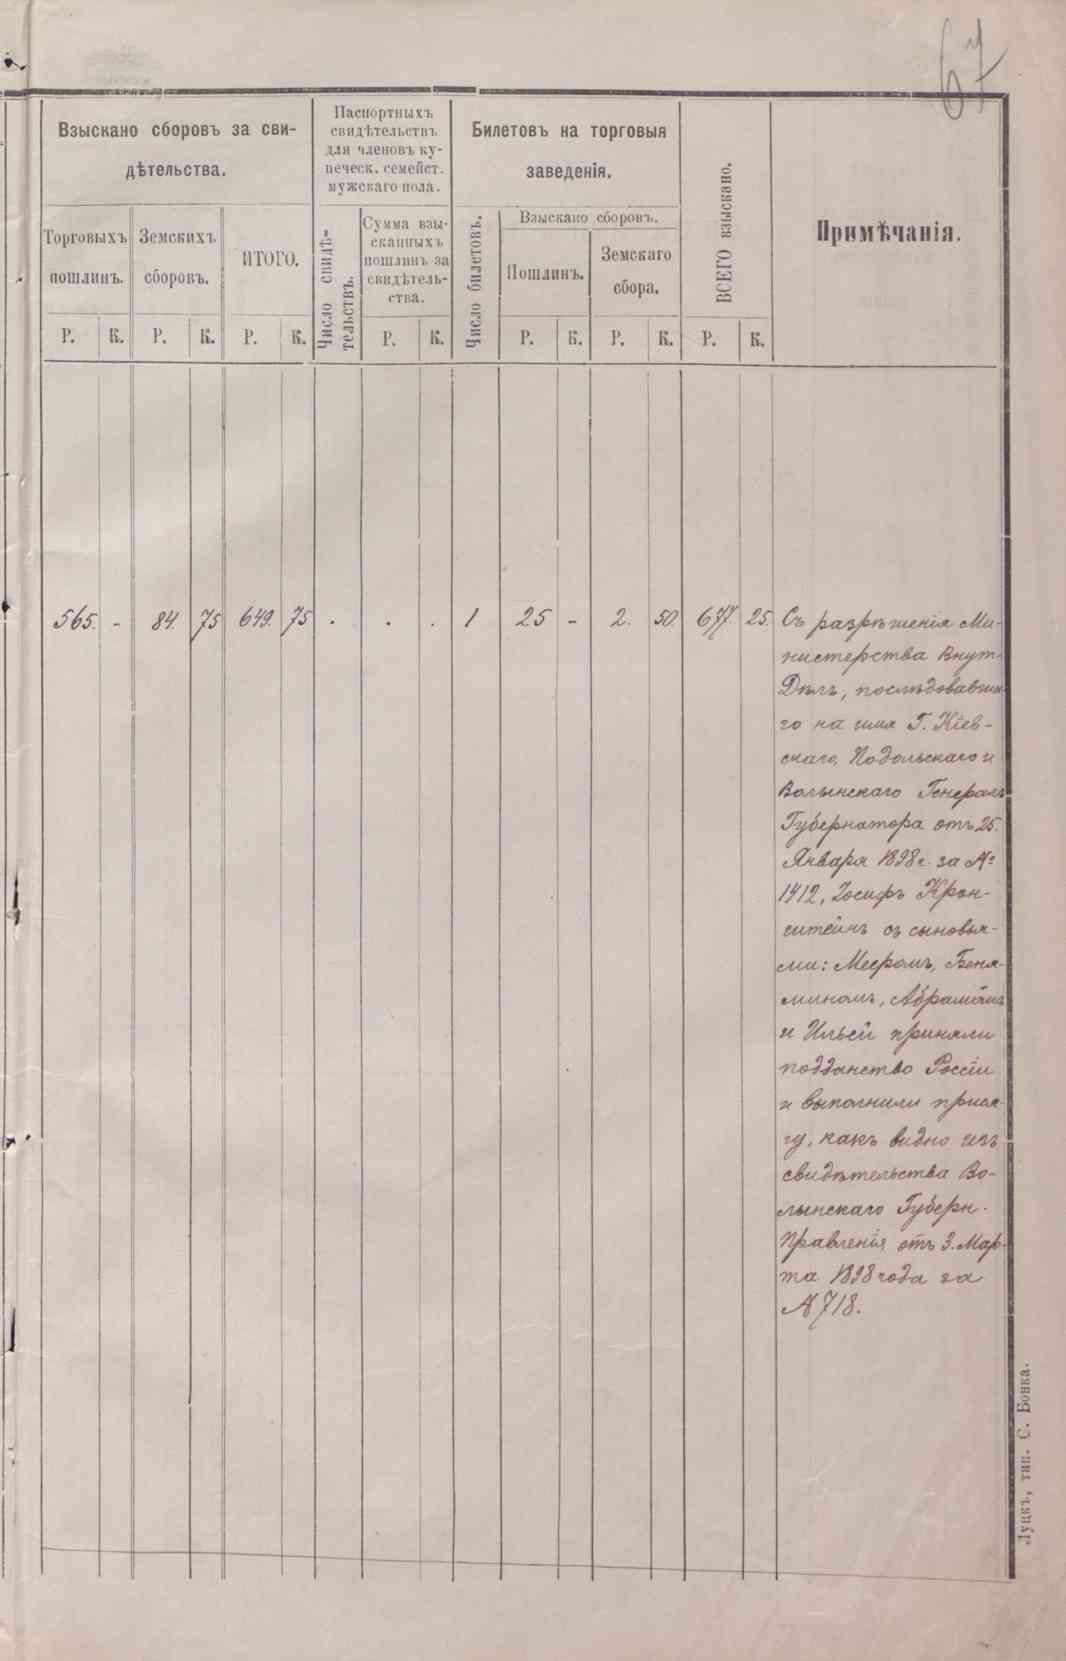 67
Взыскано сборовъ за сви-
дѣтельства.
Паспортныхъ
свидѣтельствъ
для членовъ ку-
печеск. семейст.
мужскаго пола.
Билетовъ на торговыя
заведенія.
ВСЕГО взыскано.
Примѣчанія.
Торговыхъ
пошлинъ.
Земскихъ
сборовъ.
ИТОГО.
Число свидѣ-
тельствъ.
Сумма взы-
сканныхъ
пошлинъ за
свидѣтель-
ства.
Число билетовъ.
Взыскано сборовъ.
Пошлинъ.
Земскаго
сбора.
Р. К. Р. К. Р. К. Р. К. Р. К. Р. К. Р. К.
565. - 84. 75 649. 75 . . . 1 25 - 2. 50 677. 25.
Съ разрѣшенія Ми-
нистерства Внут-
Дѣлъ, послѣдовавша-
го на имя Г. Кіев-
скаго, Подольскаго и
Волынскаго Генералъ
Губернатора отъ 25.
Января 1898 г. за №
1412, Іосифъ Крон-
штейнъ съ сыновья-
ми: Мееромъ, Беня-
миномъ, Абрамомъ
и Ильей приняли
подданство Россіи
и выполнили прися-
гу, какъ видно изъ
свидѣтельства Во-
лынскаго Губерн.
Правленія отъ 3. Мар-
та 1898 года за
№ 718.
Луцкъ, тип. С. Бонка.